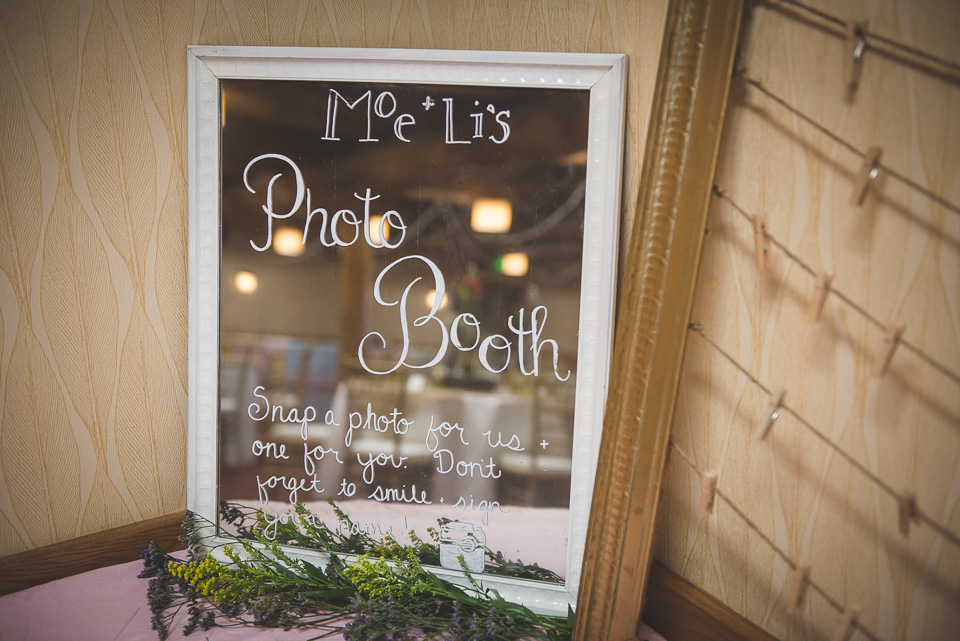 Moe + Li's
Photo
Booth
Snap a photo for us +
one for you. Don't
forget to smile + sign
your name!